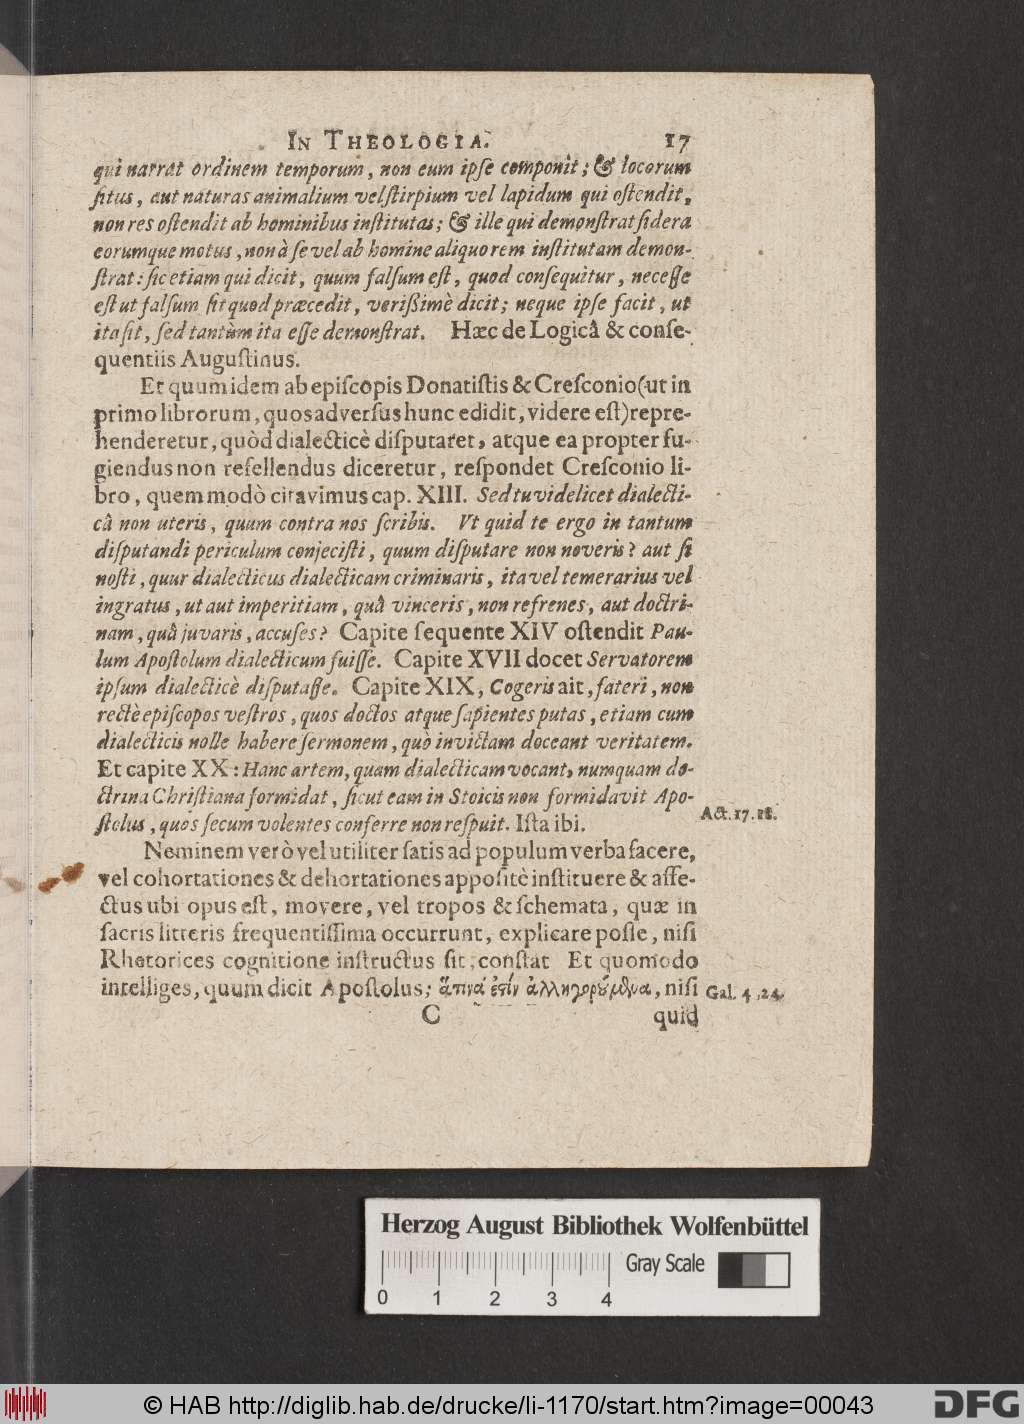 IN THEOLOGIA. 17
qui narrat ordinem temporum, non eum ipſe componit; & locorum
ſitus, aut naturas animalium vel ſtirpium vel lapidum qui oſtendit,
non res oſtendit ab hominibus inſtitutas; & ille qui demonſtrat ſidera
eorumque motus, non à ſe vel ab homine aliquo rem inſtitutam demon-
ſtrat: ſic etiam qui dicit, quum falſum eſt, quod conſequitur, neceſſe
eſt ut falſum ſit quod præcedit, verißimè dicit; neque ipſe facit, ut
ita ſit, ſed tantùm ita eſſe demonſtrat. Hæc de Logicâ & conſe-
quentiis Auguſtinus.
Et quum idem ab epiſcopis Donatiſtis & Creſconio (ut in
primo librorum, quos adverſus hunc edidit, videre eſt) repre-
henderetur, quòd dialecticè diſputaret, atque ea propter fu-
giendus non refellendus diceretur, reſpondet Creſconio li-
bro, quem modò citavimus cap. XIII. Sed tu videlicet dialecti-
câ non uteris, quum contra nos ſcribis. Vt quid te ergo in tantum
diſputandi periculum conjeciſti, quum diſputare non noveris? aut ſi
noſti, quur dialecticus dialecticam criminaris, ita vel temerarius vel
ingratus, ut aut imperitiam, quâ vinceris, non refrenes, aut doctri-
nam, quâ juvaris, accuſes? Capite ſequente XIV oſtendit Pau-
lum Apoſtolum dialecticum fuiſſe. Capite XVII docet Servatorem
ipſum dialecticè diſputaſſe. Capite XIX, Cogeris ait, fateri, non
rectè epiſcopos veſtros, quos doctos atque ſapientes putas, etiam cum
dialecticis nolle habere ſermonem, quò invictam doceant veritatem.
Et capite XX: Hanc artem, quam dialecticam vocant, numquam do-
ctrina Chriſtiana formidat, ſicut eam in Stoicis non formidavit Apo-
ſtolus, quos ſecum volentes conferre non reſpuit. Iſta ibi.
Act. 17. 18.
Neminem verò vel utiliter ſatis ad populum verba facere,
vel cohortationes & dehortationes appoſitè inſtituere & affe-
ctus ubi opus eſt, movere, vel tropos & ſchemata, quæ in
ſacris litteris frequentiſſima occurrunt, explicare poſſe, niſi
Rhetorices cognitione inſtructus ſit, conſtat Et quomodo
intelliges, quum dicit Apoſtolus; ἅτινά ἐςιν ἀλληγορούμενα, niſi
Gal. 4, 24.
C quid
Herzog August Bibliothek Wolfenbüttel
Gray Scale
0 1 2 3 4
© HAB http://diglib.hab.de/drucke/li-1170/start.htm?image=00043
DFG